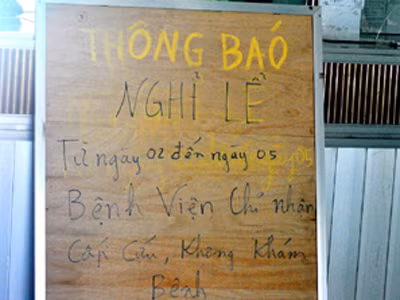 THÔNG BÁO
NGHỈ LỄ
Từ ngày 02 đến ngày 05
Bệnh Viện Chỉ nhận
Cấp Cứu, Không Khám
Bệnh